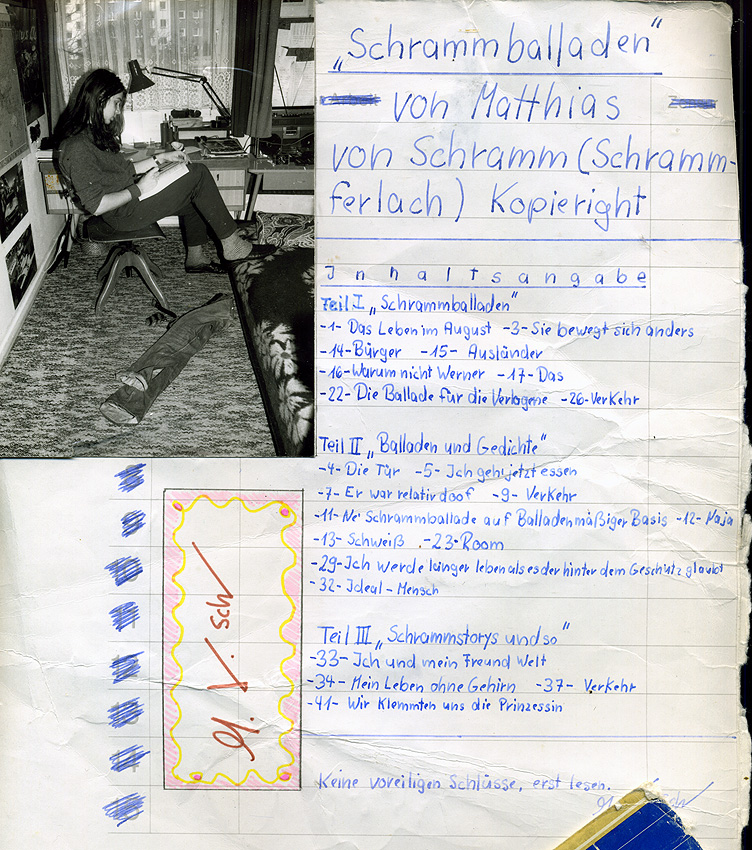 „Schrammballaden“
von Matthias
von Schramm (Schramm-
ferlach) Kopieright
Inhaltsangabe
Teil I „Schrammballaden“
-1- Das Leben im August -3- Sie bewegt sich anders
-14- Bürger -15- Ausländer
-16- Warum nicht Werner -17- Das
-22- Die Ballade für die Verlogene -26- Verkehr
Teil II „Balladen und Gedichte“
-4- Die Tür -5- Ich geh jetzt essen
-7- Er war relativ doof -9- Verkehr
-11- Ne' Schrammballade auf Balladenmäßiger Basis -12- Maja
-13- Schweiß -23- Room
-29- Ich werde länger leben als es der hinter dem Geschütz glaubt
-32- Ideal-Mensch
Teil III „Schrammstorys und so“
-33- Ich und mein Freund Welt
-34- Mein Leben ohne Gehirn -37- Verkehr
-41- Wir klemmten uns die Prinzessin
Keine voreiligen Schlüsse, erst lesen.
M. V. Sch